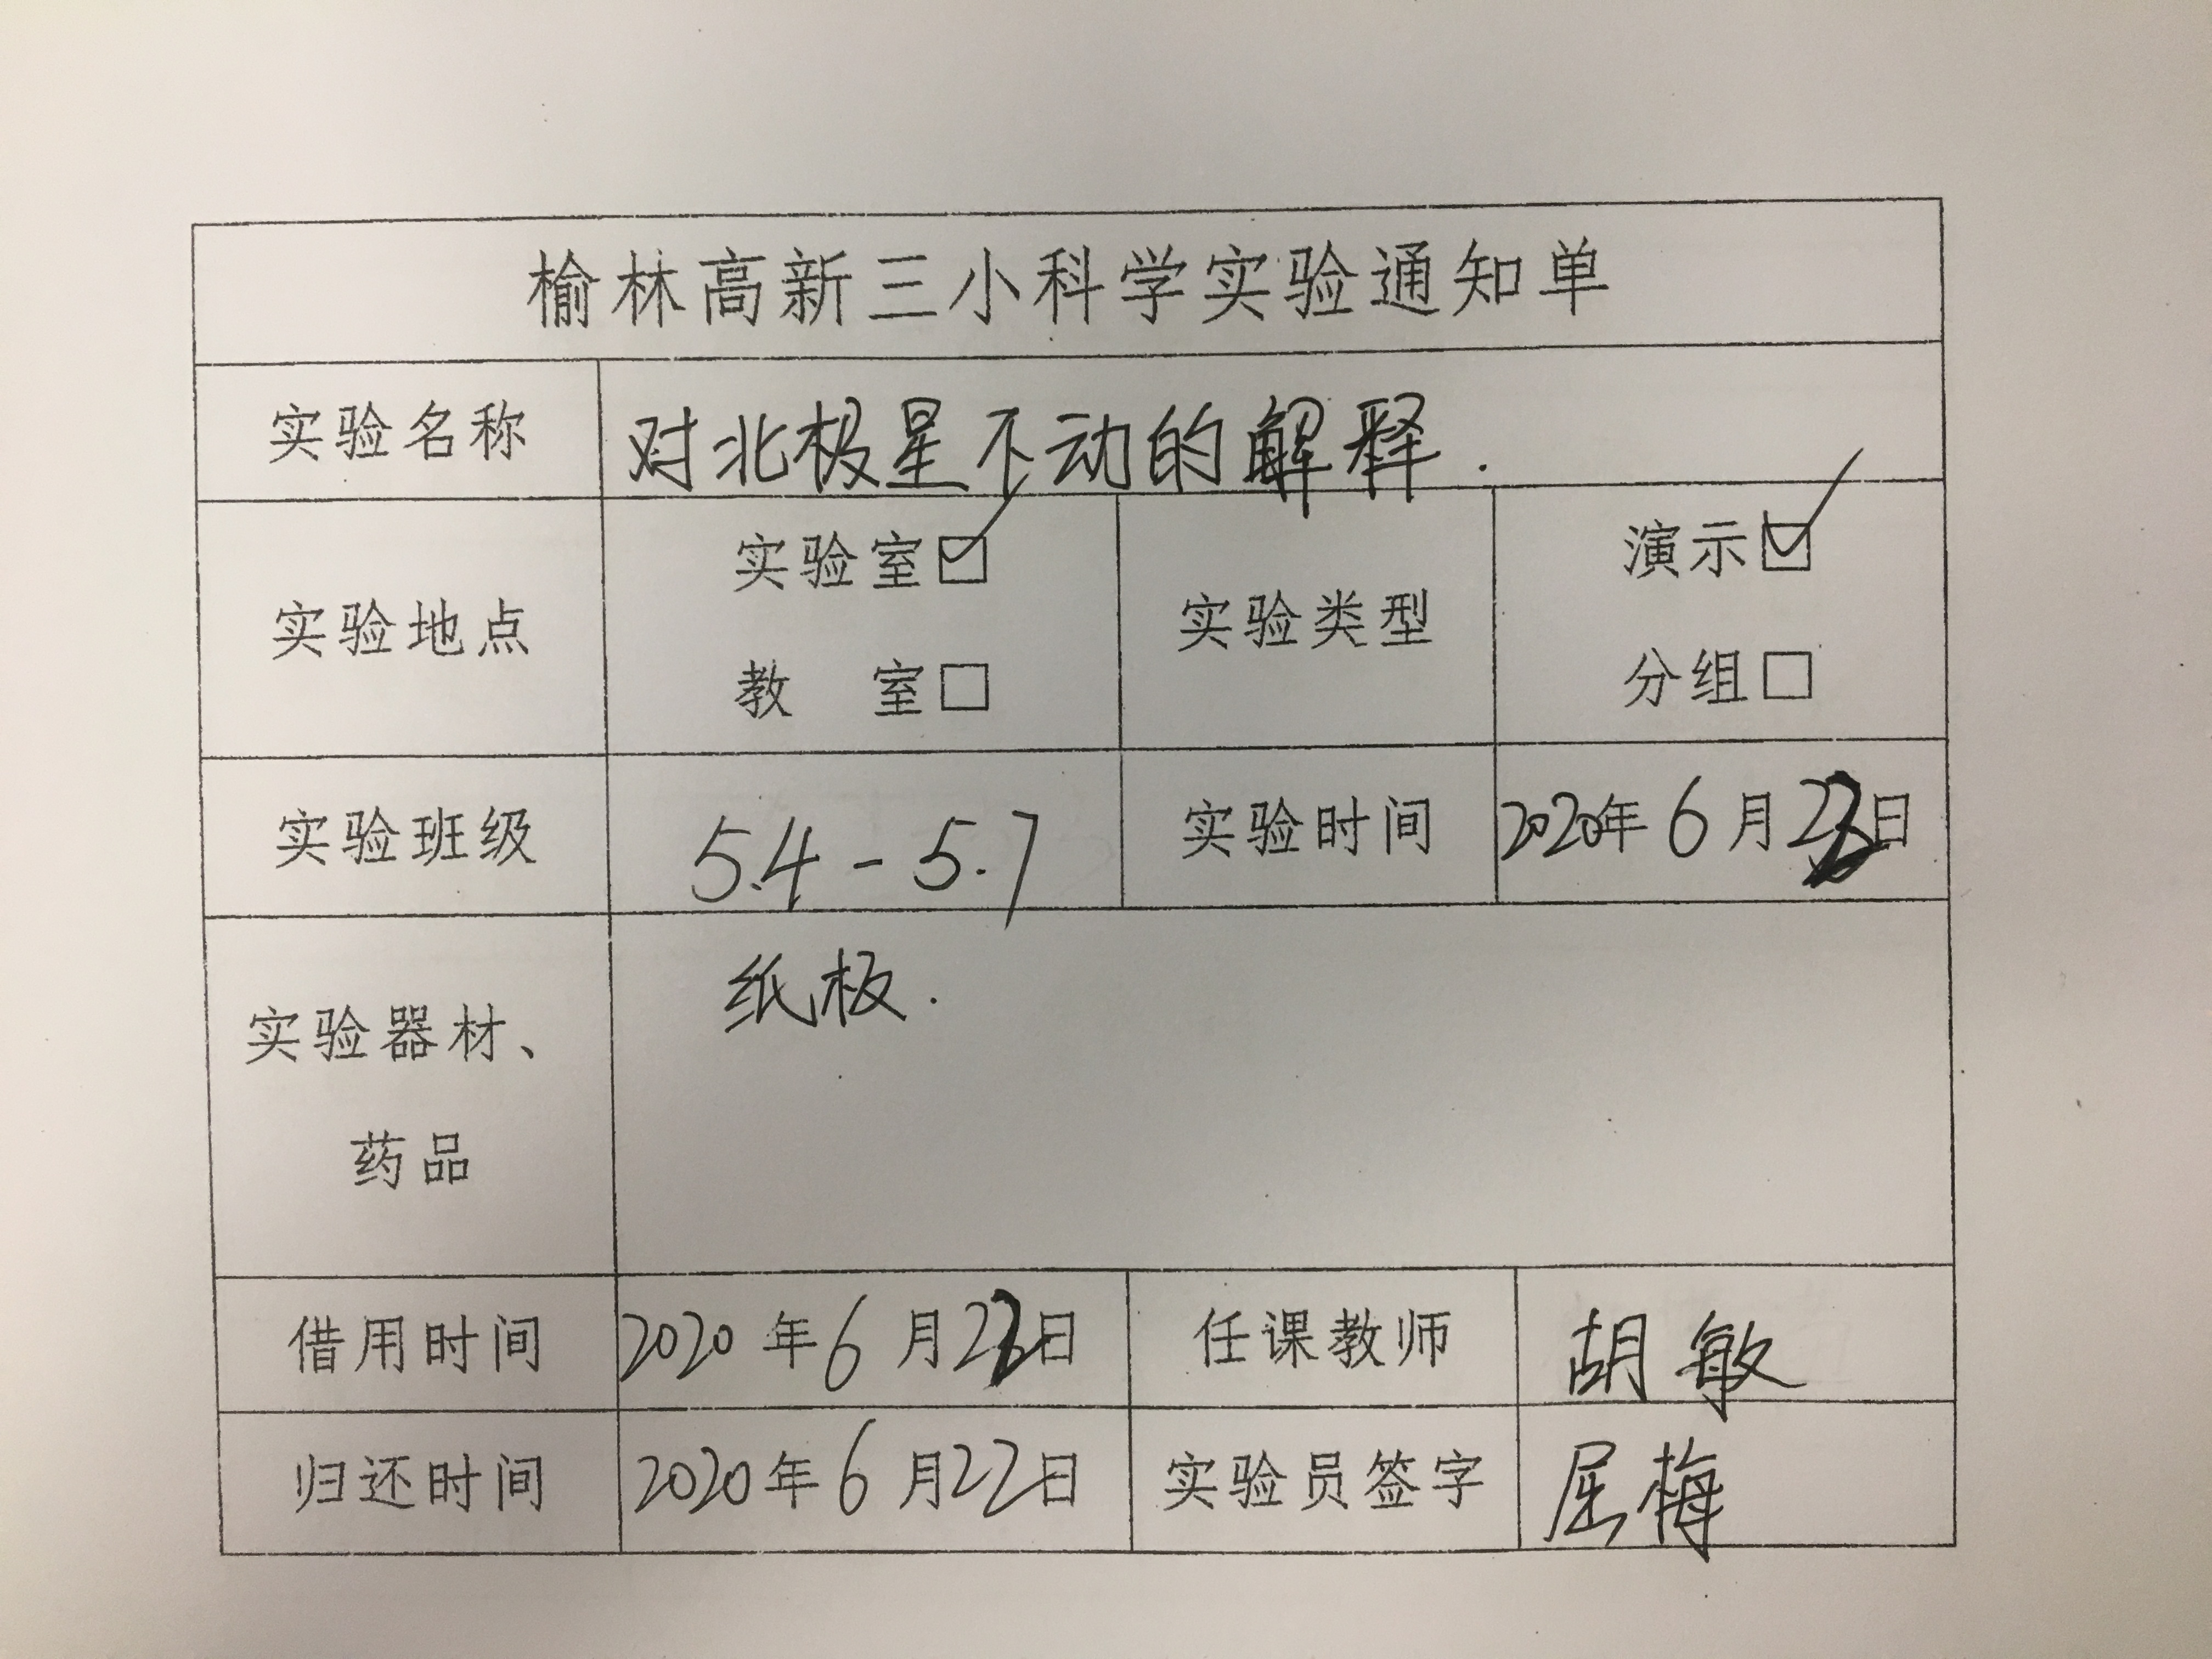 榆林高新三小科学实验通知单
实验名称 对北极星不动的解释.
实验地点 实验室☑ 教 室□ 实验类型 演示☑ 分组□
实验班级 5.4-5.7 实验时间 2020年6月22日
实验器材、药品 纸板.
借用时间 2020年6月22日 任课教师 胡敏
归还时间 2020年6月22日 实验员签字 屈梅